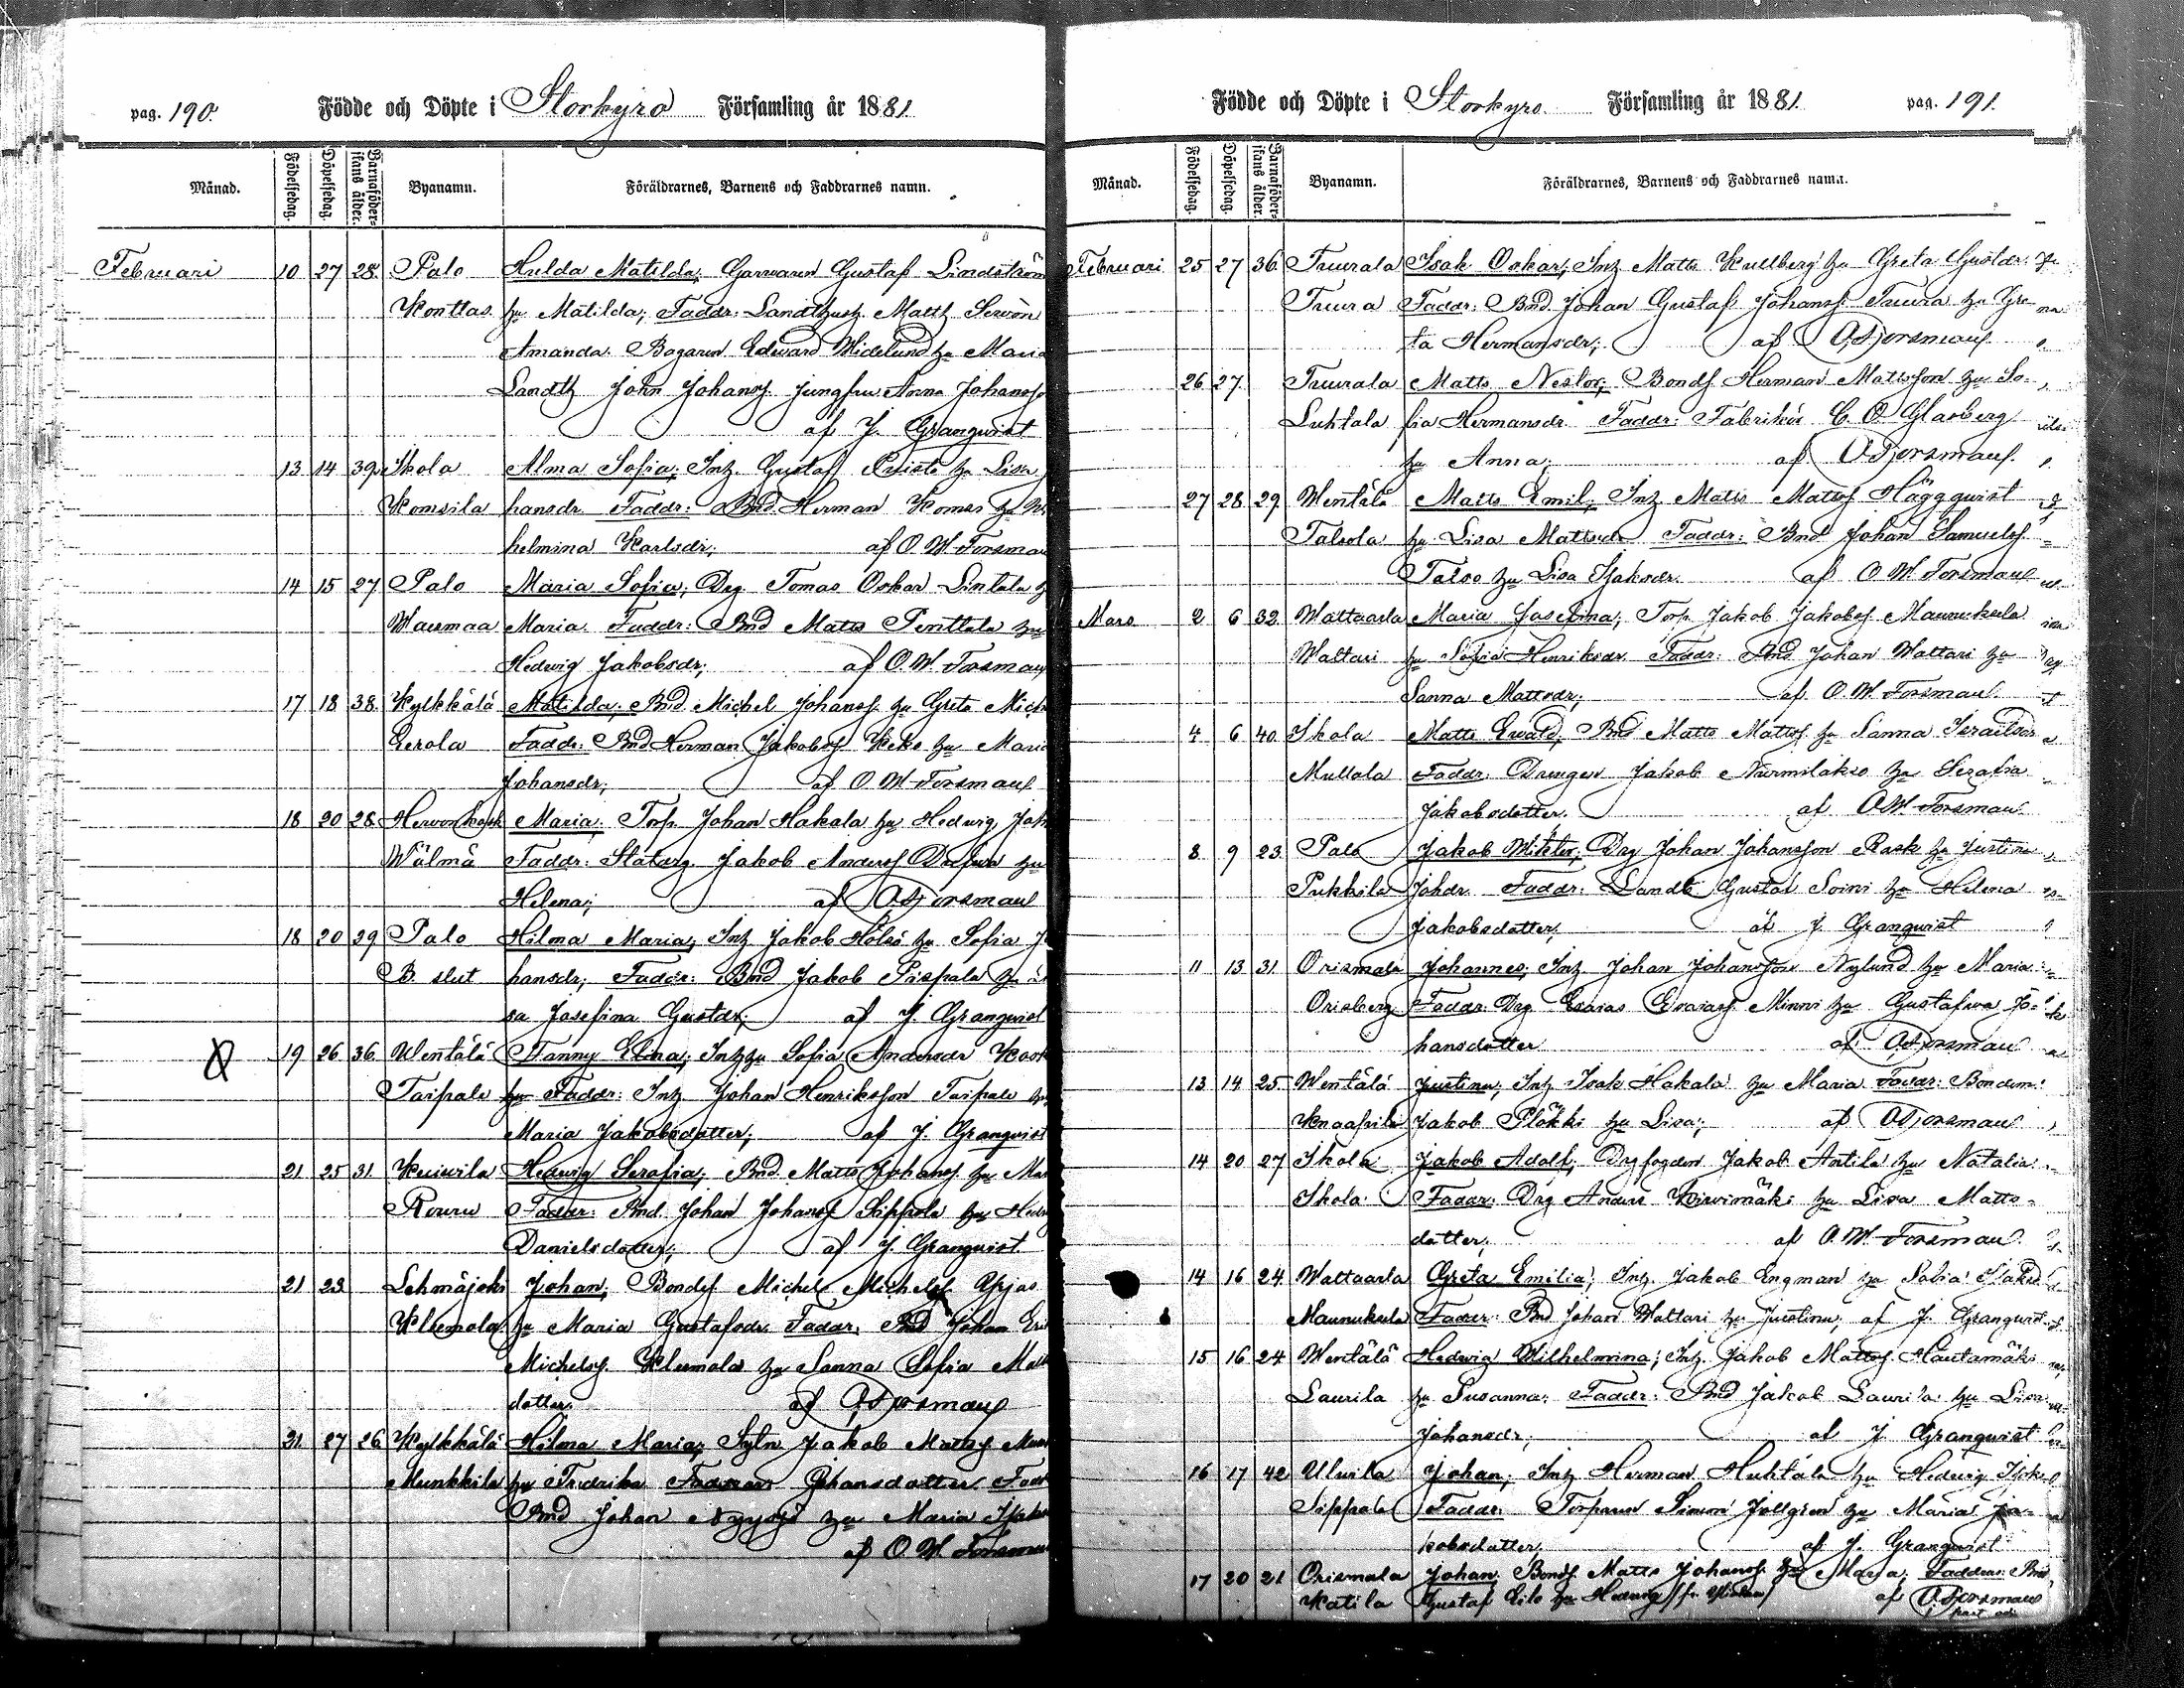 pag. 190. Födde och Döpte i Storkyro Församling år 1881
Månad. Födelsedag. Döpelsedag. Barnaföder- skans ålder. Byanamn. Föräldrarnes, Barnens och Faddrarnes namn.
Februari 10 27 28. Palo Hulda Matilda; Garvaren Gustaf Lindström
Konttas. hu Matilda; Faddr: Landthush. Matth
Amanda. Bagaren Edward Widelund hu Maria
Landth John Johanss. jungfru Anna Johanss
af J. Granqvist
13 14 39. Ikola Alma Sofia; Inh. Gustaf hu Lisa
Komsila hansdr Faddr: Bnd. Herman Komsi hu
helmina Karlsdr; af O. W. Forsman
14 15 27 Palo Maria Sofia; Drg Tomas Oskar Lintala
Wainmaa Maria. Faddr: Bnd Matts Penttala hu
Hedwig Jakobsdr; af O. W. Forsman
17 18 38. Kylkkälä Matilda; Bnd. Michel Johanss. hu Greta Mich
Eerola Faddr: Bnd Herman Jakobss Keko hu Maria
Johansdr; af O. W. Forsman
18 20 28. Maria. Torp. Johan Hakala hu Hedwig
Wälmä Faddr: Statdrg. Jakob Anderss hu
Helena; af O W Forsman
18 20 29 Palo Hilma Maria; Inh Jakob Hölsö hu Sofia J
B. slut hansdr; Faddr: Bnd Jakob Pispala hu
sa Josefina Gustdr; af J. Granqvist
19 26 36. Wentälä Fanny Elina; Inh hu Sofia Andersdr
Taipale hu Faddr: Inh Johan Henriksson Taipale hu
Maria Jakobsdotter; af J. Granqvist
21 25 31. Kuiwila Hedwig Serafia; Bnd. Matts Johanss hu
Rouru Faddr: Bnd. Johan Johanss Sippola hu
Danielsdotter; af J. Granqvist
21 23 Lehmäjoki Johan; Bondes. Michel Michelss.
Kleemola hu Maria Gustafsdr. Faddr. Bnd Johan
Michelss. Kleemola hu Sanna Sofia
dotter. af O W Forsman
21 27 26 Kylkkälä Hilma Maria; Jakob Mattss
Munkkila hu Fredrika Johansdotter
Bnd Johan hu Maria
af O. W. Forsman
Födde och Döpte i Storkyro. Församling år 1881. pag. 191.
Månad. Födelsedag. Döpelsedag. Barnaföder- skans ålder. Byanamn. Föräldrarnes, Barnens och Faddrarnes namn.
Februari 25 27 36. Tuurala Isak Oskar; Inh Matts Kullberg hu Greta Gustdr.
Tuura Faddr: Bnd. Johan Gustaf Johanss. Tuura hu Gre
ta Hermansdr; af O W Forsman
26 27. Tuurala Matts Nestor; Bonds Herman Mattsson hu So-
Luhtala fia Hermansdr. Faddr: Fabrikör C. O. Glasberg
hu Anna; af O W Forsman.
27 28 29. Wentälä Matts Emil; Inh Matts Mattss Häggqwist
Talsola hu Lisa Mattsdr Faddr: Bnd Johan Samuelss.
Talso hu Lisa Isaksdr. af O. W. Forsman
Mars 2 6 32. Wattaarla Maria Josefina; Torp. Jakob Jakobss Maunukeela
Wattari hu Sofia Henriksdr. Faddr: Bnd Johan Wattari hu
Sanna Mattsdr; af. O. W. Forsman.
4 6 40 Ikola Matts Ewald; Bnd Matts Mattss. hu Sanna Israelsdr
Mullola Faddr: Drengen Jakob Nurmilakso hu Serafia
Jakobsdotter. af O W Forsman.
8. 9 23. Palo Jakob Wiktor; Drg Johan Johansson Rask hu Justina
Pukkila Johdr. Faddr: Landb Gustaf Soini hu Helena
Jakobsdotter; af J. Granqvist
11 13 31. Orismala Johannes; Inh Johan Johansson Nylund hu Maria
Orisberg Faddr: Drg Esaias Esaiass Minni hu Gustafwa Jo-
hansdotter af O W Forsman
13 14 25 Wentälä Justina; Inh Isak Hakala hu Maria. Faddr: Bonden
Knaapila Jakob Plökki hu Lisa; af O W Forsman
14 20 27 Ikola Jakob Adolf; Drgfogden Jakob Antila hu Natalia
Ikola. Faddr: Drg Anders Kiwimäki hu Lisa Matts-
dotter; af O. W. Forsman
14 16 24 Wattaarla Greta Emilia; Inh. Jakob Engman hu Sofia Isaksd
Maunukeela Faddr: Bnd Johan Wattari hu Justina; af J. Granqvist
15 16 24. Wentälä Hedwig Wilhelmina; Inh. Jakob Mattss. Hautamäki
Laurila hu Susanna. Faddr: Bnd Jakob Laurila hu Lisa
Johansdr; af J. Granqvist
16 17 42 Ulvila Johan; Inh Herman Huhtala hu Hedwig
Sippola Faddr: Torparen Simon Jollgren hu Maria Ja-
kobsdotter. af J. Granqvist
17 20 21 Orismala Johan. Bonds. Matts Johanss. hu Maria. Faddrar: Bnd
Katila Gustaf Eilo hu Hedwig af O W Forsman